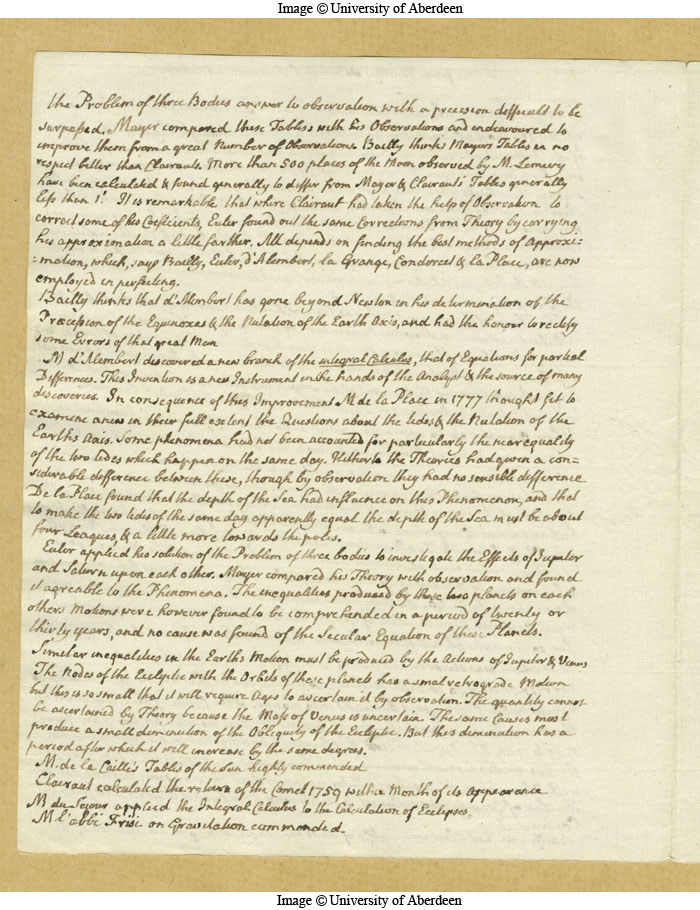 Image © University of Aberdeen
the Problem of three Bodies answer to observation with a precision difficult to be
surpassed. Mayer compared these Tables with his Observations and endeavoured to
improve them from a great Number of Observations. Bailly thinks Mayers Tables in no
respect better than Clairauts. More than 500 places of the Moon observed by M. Lemery
have been calculated & found generally to differ from Mayer & Clairauts Tables generally
less than 1'. It is remarkable that where Clairaut had taken the help of Observation to
correct some of his Coefficients, Euler found out the same Corrections from Theory by carrying
his approximation a little farther. All depends on finding the best methods of Approxi=
=mation, which, says Bailly, Euler, d'Alembert, la Grange, Condorcet & la Place, are now
employed in perfecting.
Bailly thinks that d'Alembert has gone beyond Newton in his determination of the
Præcession of the Equinoxes & the Nutation of the Earth Axis, and had the honour to rectify
some Errors of that great Man
M d'Alembert discovered a new branch of the integral Calculus, that of Equations for partial
Differences. This Invention is a new Instrument in the hands of the Analyst & the source of many
discoveries. In consequence of this Improvement M de la Place in 1777 thought fit to
examine anew in their full extent the Questions about the tides & the Nutation of the
Earths axis. Some phenomena had not been accounted for particularly the near equality
of the two tides which happen on the same day. Hitherto the Theories had given a con=
siderable difference between these, though by observation they had no sensible difference
De la Place found that the depth of the Sea had influence on this Phenomenon, and that
to make the two tides of the same day apparently equal the depth of the Sea must be about
four Leagues, & a little more towards the poles.
Euler applied his solution of the Problem of three bodies to investigate the Effects of Jupiter
and Saturn upon each other. Mayer compared his Theory with observation and found
it agreable to the Phenomena. The inequalities produced by these two planets on each
others Motions were however found to be comprehended in a period of twenty or
thirty years, and no cause was found of the Secular Equation of these Planets.
Similar inequalities in the Earths Motion must be produced by the Actions of Jupiter & Venus
The Nodes of the Ecliptic with the Orbits of these planets has a smal retrograde Motion
but this is so small that it will require Ages to ascertain'd by observation. The quantity cannot
be ascertained by Theory because the Mass of Venus is uncertain. The same Causes must
produce a small diminution of the Obliquity of the Ecliptic. But this diminution has a
period after which it will increase by the same degrees.
M. de la Caille's Tables of the Sun highly commended
Clairaut calculated the return of the Comet 1759 within a Month of its Appearance
M du Sejour applied the Integral Calculus to the Calculation of Eclipses.
M l'abbé Frisi on Gravitation commended.
Image © University of Aberdeen